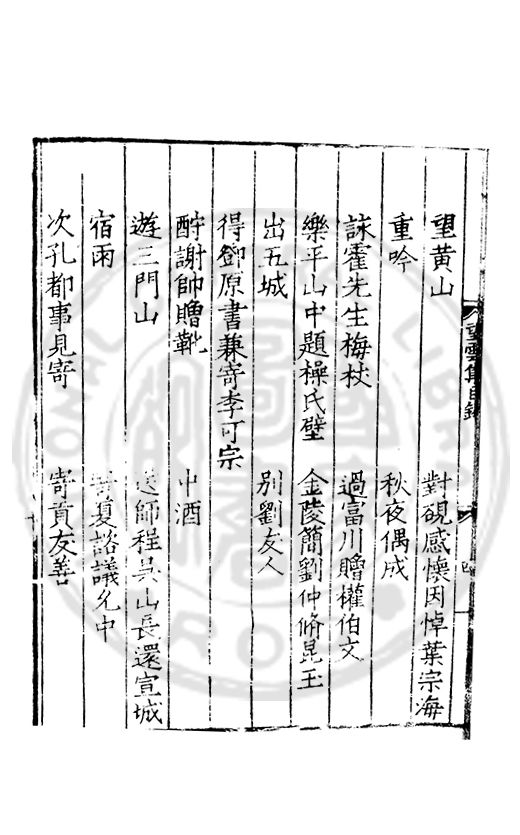 望黄山　對硯感懷因悼葉宗海
重吟　秋夜偶成
詠霍先生梅杖　過富川贈權伯文
樂平山中題操氏壁　金陵簡劉仲脩昆玉
出五城　別劉友人
得鄧原書兼寄李可宗
酧謝帥贈靴　中酒
遊三門山　送師程吳山長還宣城
宿雨　寄夏諮議允中
次孔都事見寄　寄貢友善
望雲集目錄